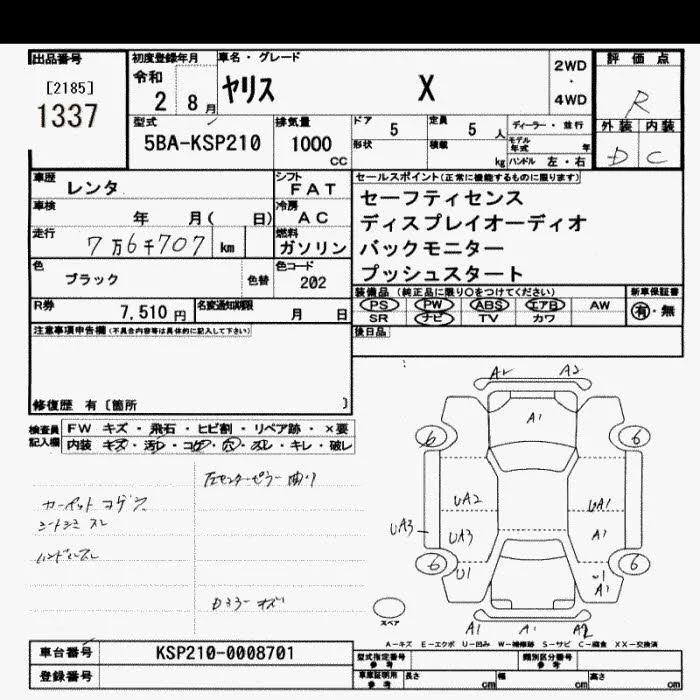 出品番号
[2185]
1337
初度登録年月
令和
2 8月
車名・グレード
ヤリス X
2WD
・
4WD
評価点
R
外装 内装
D C
型式
5BA-KSP210
排気量
1000
cc
ドア 5
定員 5 人
形状
積載 kg
ディーラー・並行
モデル年式 年
ハンドル 左・右
車歴 レンタ
シフト FAT
車検 年 月( 日)
冷房 AC
走行 7万6千707 km
燃料 ガソリン
色 ブラック
色替
色コード 202
R券 7,510円
名変通知期限 月 日
セールスポイント(正常に機能するものに限ります)
セーフティセンス
ディスプレイオーディオ
バックモニター
プッシュスタート
装備品(純正品に限り○をつけてください)
PS PW ABS エアB AW
SR ナビ TV カワ
新車保証書
有・無
後日品
注意事項申告欄(不具合内容等は具体的に記入して下さい)
修復歴 有〔箇所 〕
検査員記入欄
FW キズ・飛石・ヒビ割・リペア跡・×要
内装 キズ・汚レ・コゲ・穴・スレ・キレ・破レ
左センターピラー曲り
カーペットコゲ穴
シートシミ スレ
ハンドルスレ
Dミラーキズ
A2 A2
A1
6 6
UA2 UA1
UA3 UA3 A1
6 6
U1 U1
A1
A1 A1 A2
スペア
A-キズ E-エクボ U-凹み W-補修跡 S-サビ C-腐食 XX-交換済
車台番号 KSP210-0008701
登録番号
型式指定番号 参考
類別区分番号 参考
車庫証明用 参考
長さ cm
幅 cm
高さ cm